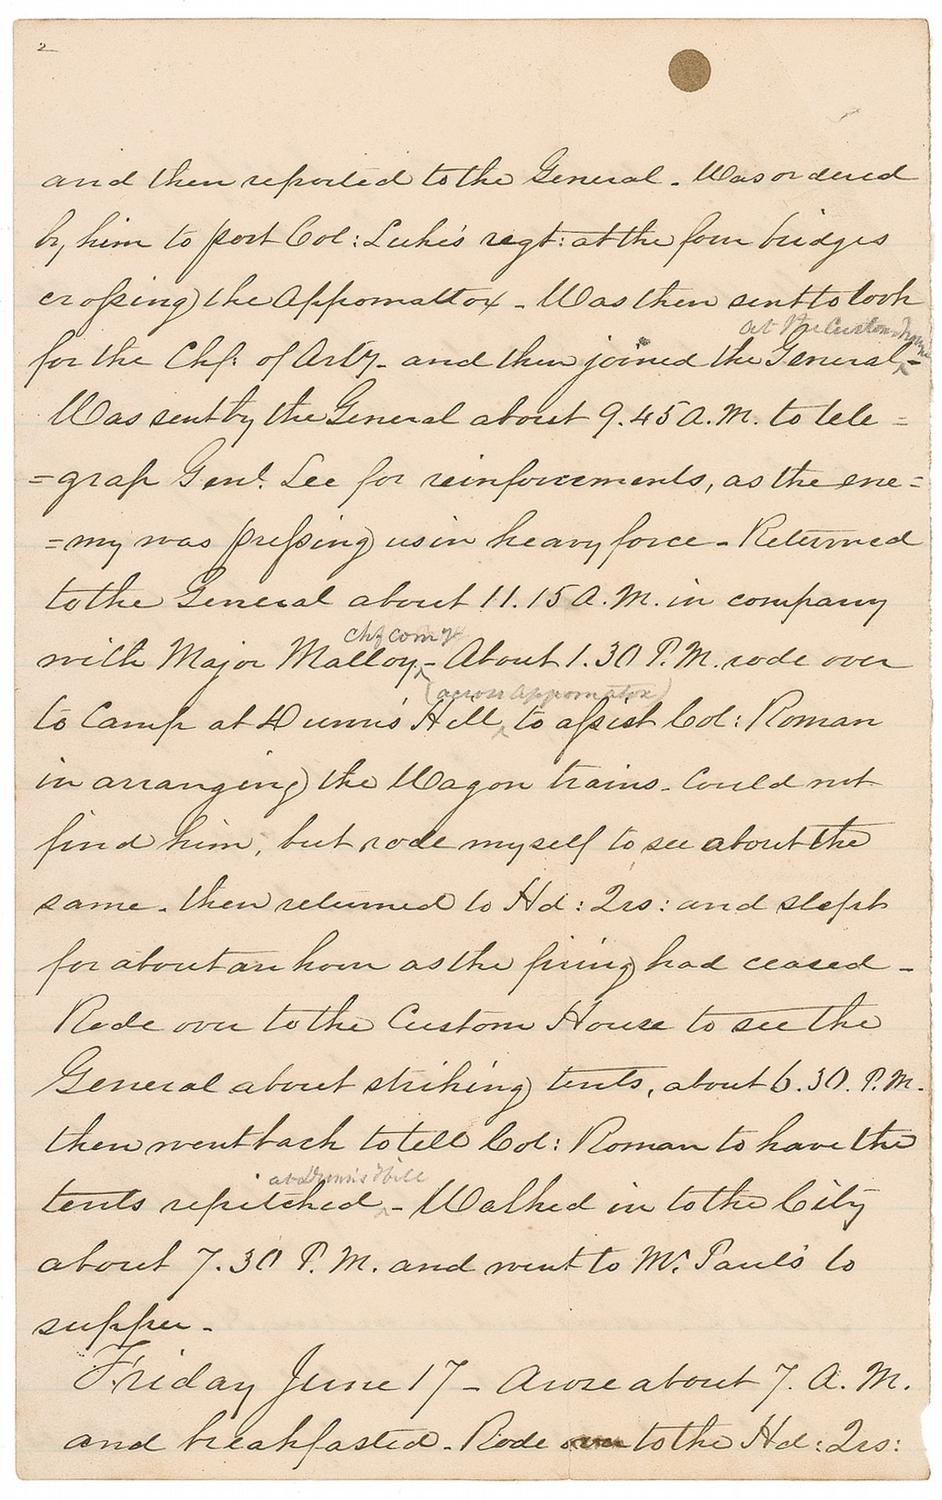 2
and then reported to the General - Was ordered
by him to post Col: Luke's regt: at the four bridges
crossing the Appomattox - Was then sent to look
at the Custom House
for the Chf: of Arty - and then joined the General ^ -
Was sent by the General about 9.45 A.M. to tele =
= grap Genl. Lee for reinforcements, as the ene =
= my was pressing us in heavy force - Returned
to the General about 11.15 A.M. in company
chf comy
with Major Malloy ^ - About 1.30 P.M. rode over
(across Appomatox)
to Camp at Dunn's Hill ^ to assist Col: Roman
in arranging the Wagon trains - Could not
find him, but rode myself to see about the
same - then returned to Hd: Qrs: and slept
for about an hour as the firing had ceased -
Rode over to the Custom House to see the
General about striking tents, about 6.30. P.M.
then went back to tell Col: Roman to have the
at Dunn's Hill
tents repitched ^ - Walked in to the City
about 7.30 P.M. and went to Mr. Paul's to
supper -
Friday June 17 - Arose about 7. A.M.
and breakfasted - Rode over to the Hd: Qrs: